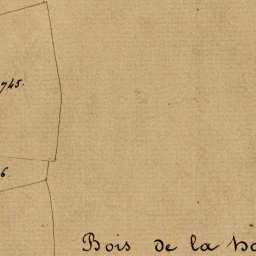 745.
6
Bois de la